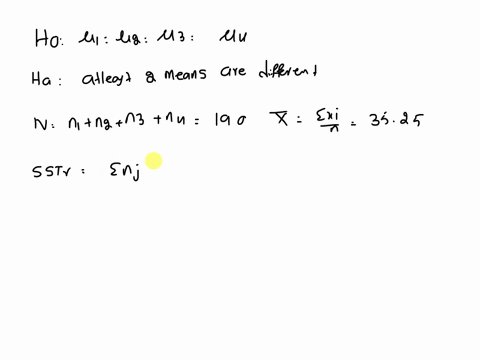 Ho: μ1: μ2: μ3: μu
Ha: atleast 2 means are different
N: n1+n2+n3+nu = 190 X̄ = Σxi/n = 35.25
SSTr = Σnj